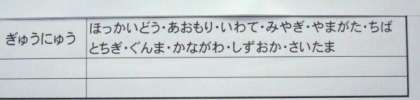 ぎゅうにゅう
ほっかいどう・あおもり・いわて・みやぎ・やまがた・ちば
とちぎ・ぐんま・かながわ・しずおか・さいたま